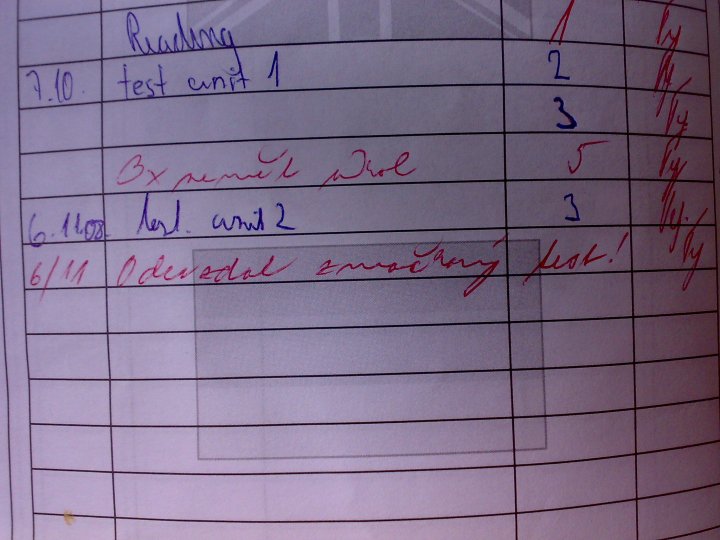 Reading 1 Vy
7.10. test unit 1 2 Vy
3 Vy
3x neměl úkol 5 Vy
6.11.08. test unit 2 3 Vy.
6/11 Odevzdal zmačkaný test! Vy